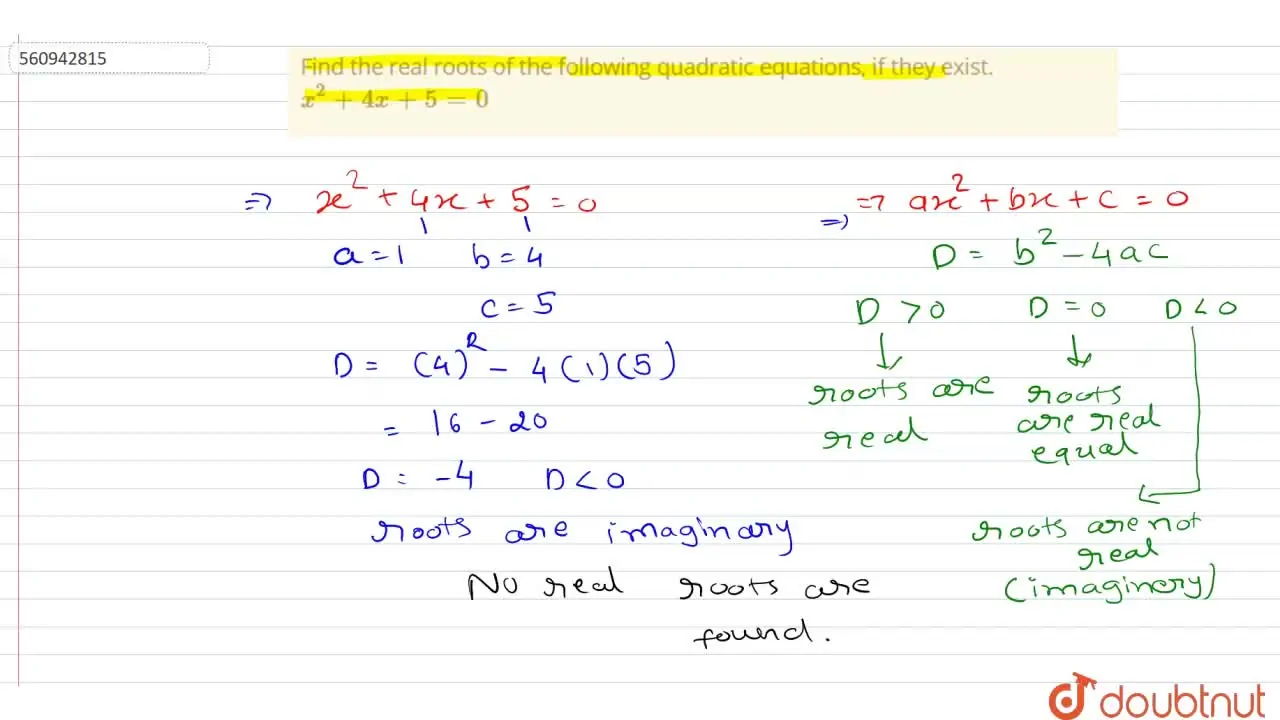 560942815
Find the real roots of the following quadratic equations, if they exist.
x² + 4x + 5 = 0
⇒ x² + 4x + 5 = 0
a = 1 b = 4
c = 5
D = (4)² - 4(1)(5)
= 16 - 20
D = -4 D < 0
roots are imaginary
No real roots are
found.
⇒ ax² + bx + c = 0
⇒
D = b² - 4ac
D > 0 D = 0 D < 0
roots are
real
roots
are real
equal
roots are not
real
(imaginery)
doubtnut